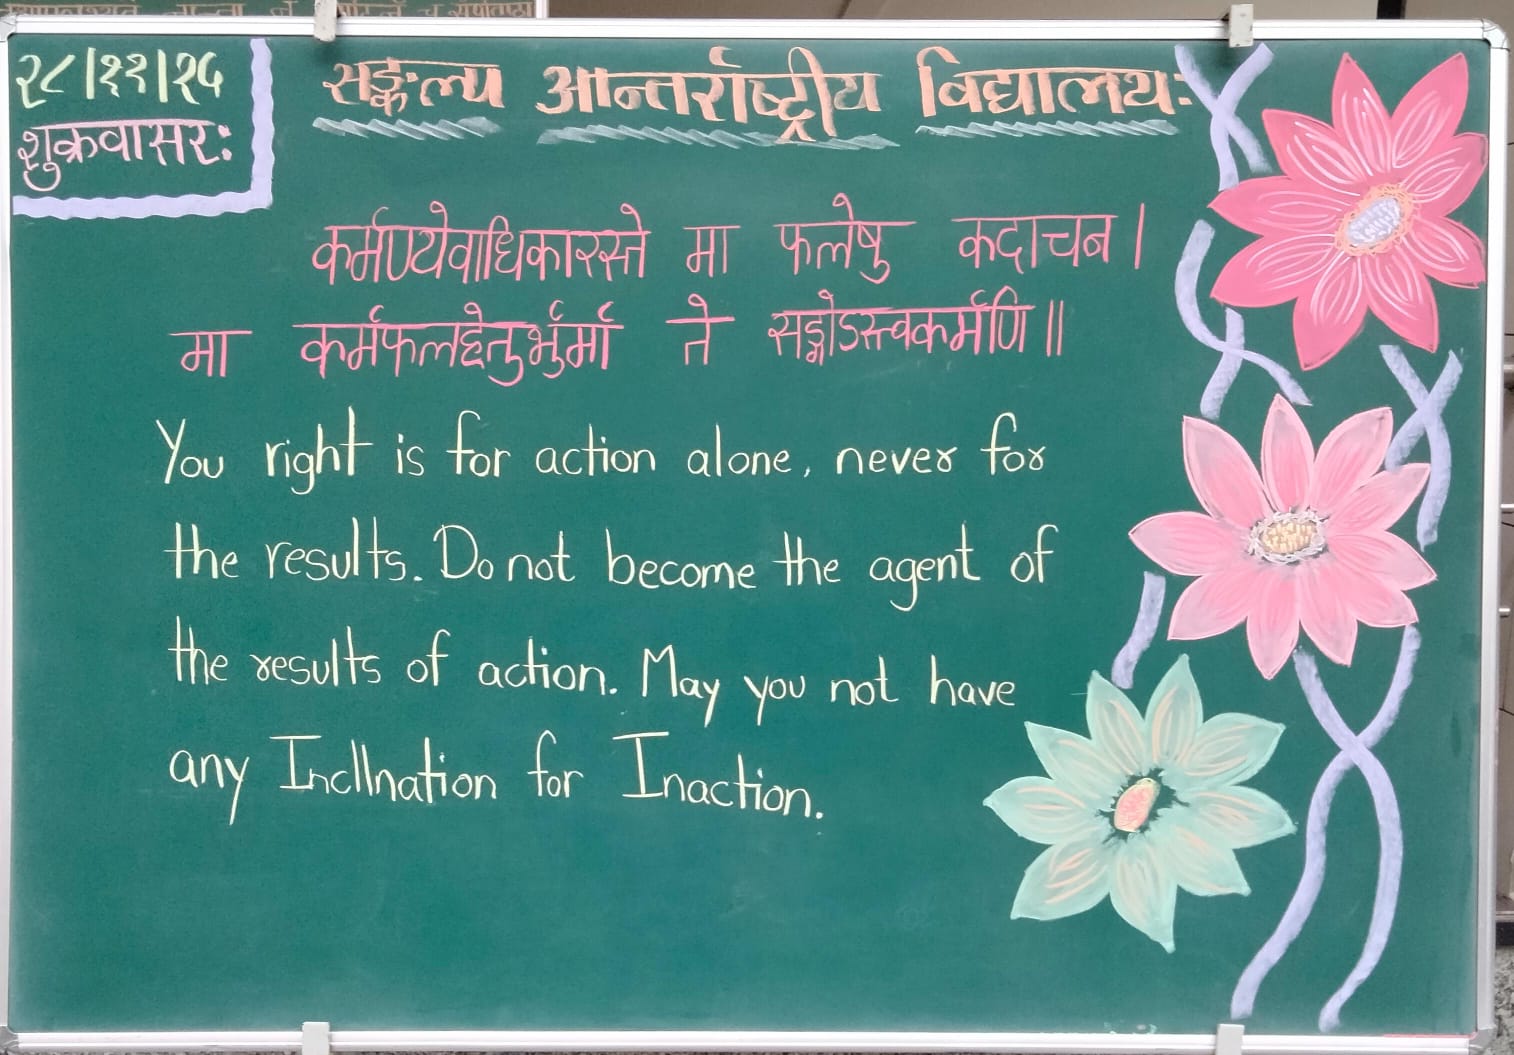 २८/११/२५
शुक्रवासरः
सङ्कल्प आन्तर्राष्ट्रीय विद्यालयः
कर्मण्येवाधिकारस्ते मा फलेषु कदाचन।
मा कर्मफलहेतुर्भुर्मा ते सङ्गोऽस्त्वकर्मणि॥
You right is for action alone, never for
the results. Do not become the agent of
the results of action. May you not have
any Inclination for Inaction.